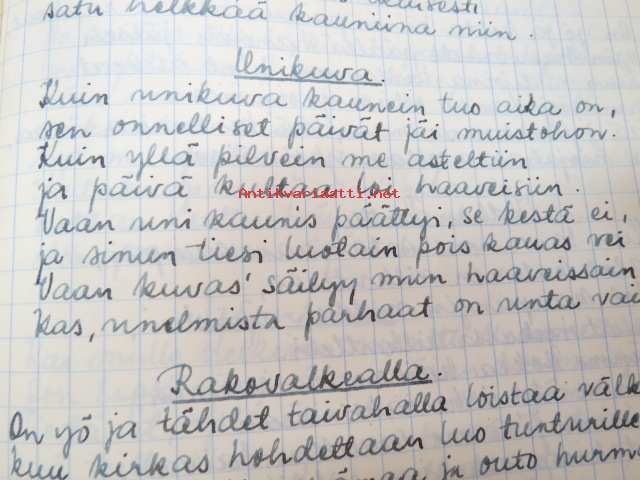 satu helkkää kauniina niin.
Unikuva.
Kuin unikuva kaunein tuo aika on,
sen onnelliset päivät jäi muistohon.
Kuin yllä pilvein me asteltiin
ja päivä kultaa loi haaveisiin.
Antikvariaatti.net
Vaan uni kaunis päättyi, se kestä ei,
ja sinun tiesi luotain pois kauas vei
Vaan kuvas' säilyy mun haaveissain
kas, unelmista parhaat on unta vai
Rakovalkealla.
On yö ja tähdet taivahalla loistaa välk
kuu kirkas hohdettaan luo tunturille
ja outo hurm